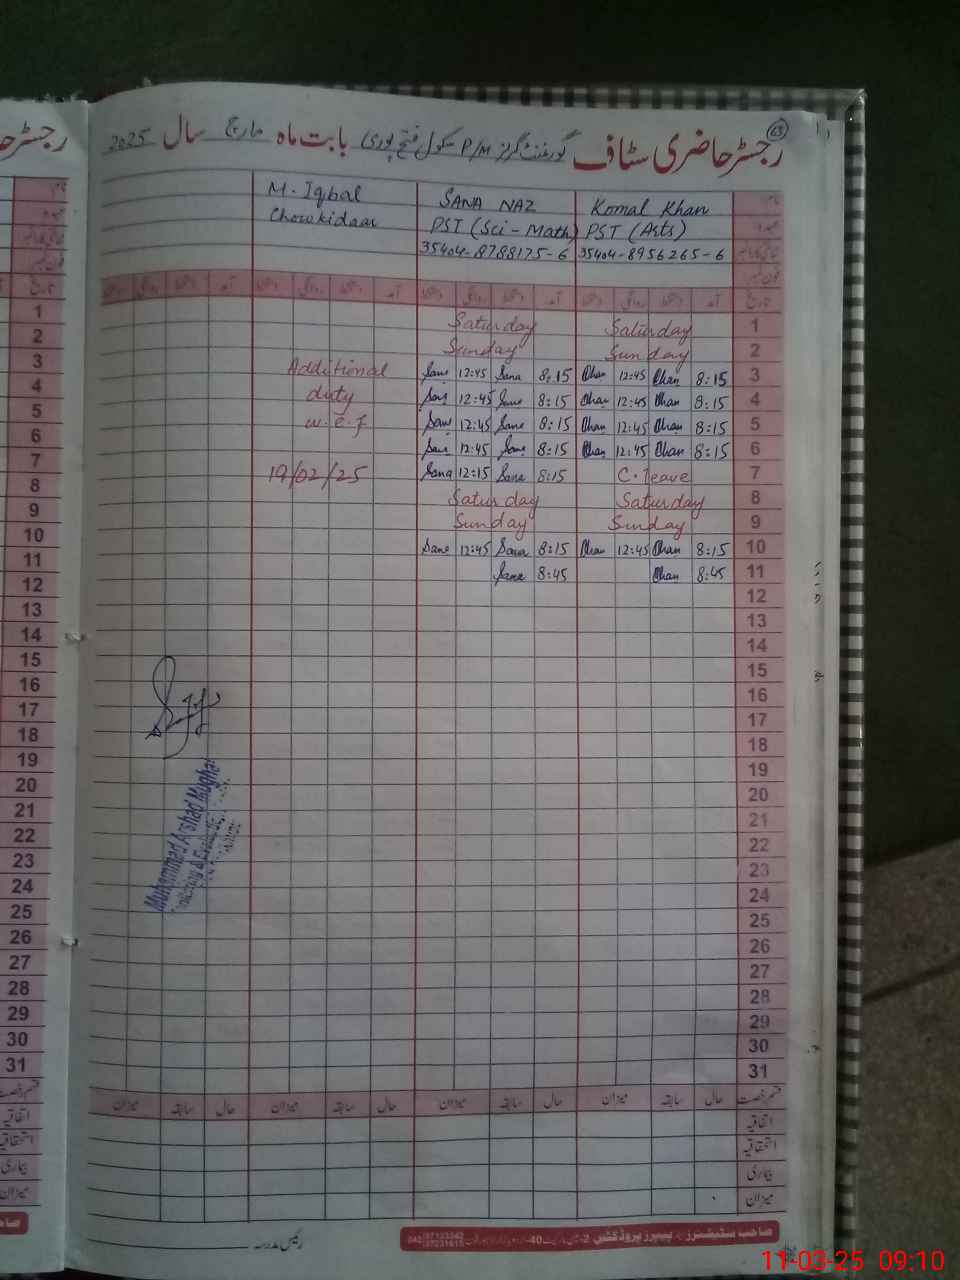 63
رجسٹر حاضری سٹاف گورنمنٹ گرلز P/M سکول فتح پوری بابت ماہ مارچ سال 2025
M. Iqbal SANA NAZ Komal Khan نام
Chowkidaar PST (Sci - Math) PST (Arts) عہدہ
35404-8788175-6 35404-8956265-6
فون نمبر
دستخط روانگی دستخط آمد دستخط روانگی دستخط آمد دستخط روانگی دستخط آمد دستخط روانگی دستخط آمد تاریخ
1 Saturday Saturday 1
2 Sunday Sunday 2
3 Additional Sana 12:45 Sana 8:15 Khan 12:45 Khan 8:15 3
4 duty Sana 12:45 Sana 8:15 Khan 12:45 Khan 8:15 4
5 w.e.f Sana 12:45 Sana 8:15 Khan 12:45 Khan 8:15 5
6 Sana 12:45 Sana 8:15 Khan 12:45 Khan 8:15 6
7 19/02/25 Sana 12:15 Sana 8:15 C. leave 7
8 Saturday Saturday 8
9 Sunday Sunday 9
10 Sana 12:45 Sana 8:15 Khan 12:45 Khan 8:15 10
11 Sana 8:45 Khan 8:45 11
12 12
13 13
14 14
15 15
16 16
17 17
18 18
19 19
20 20
21 21
22 22
23 23
24 24
25 25
26 26
27 27
28 28
29 29
30 30
31 31
Muhammad Arshad Mughal
میزان سابقہ حال میزان سابقہ حال میزان سابقہ حال میزان سابقہ حال قسم رخصت
اتفاقیہ
استحقاقیہ
بیماری
میزان
رئیس مدرسہ
صاحب سٹیشنرز اینڈ پیپرز پروڈکٹس
11-03-25 09:10